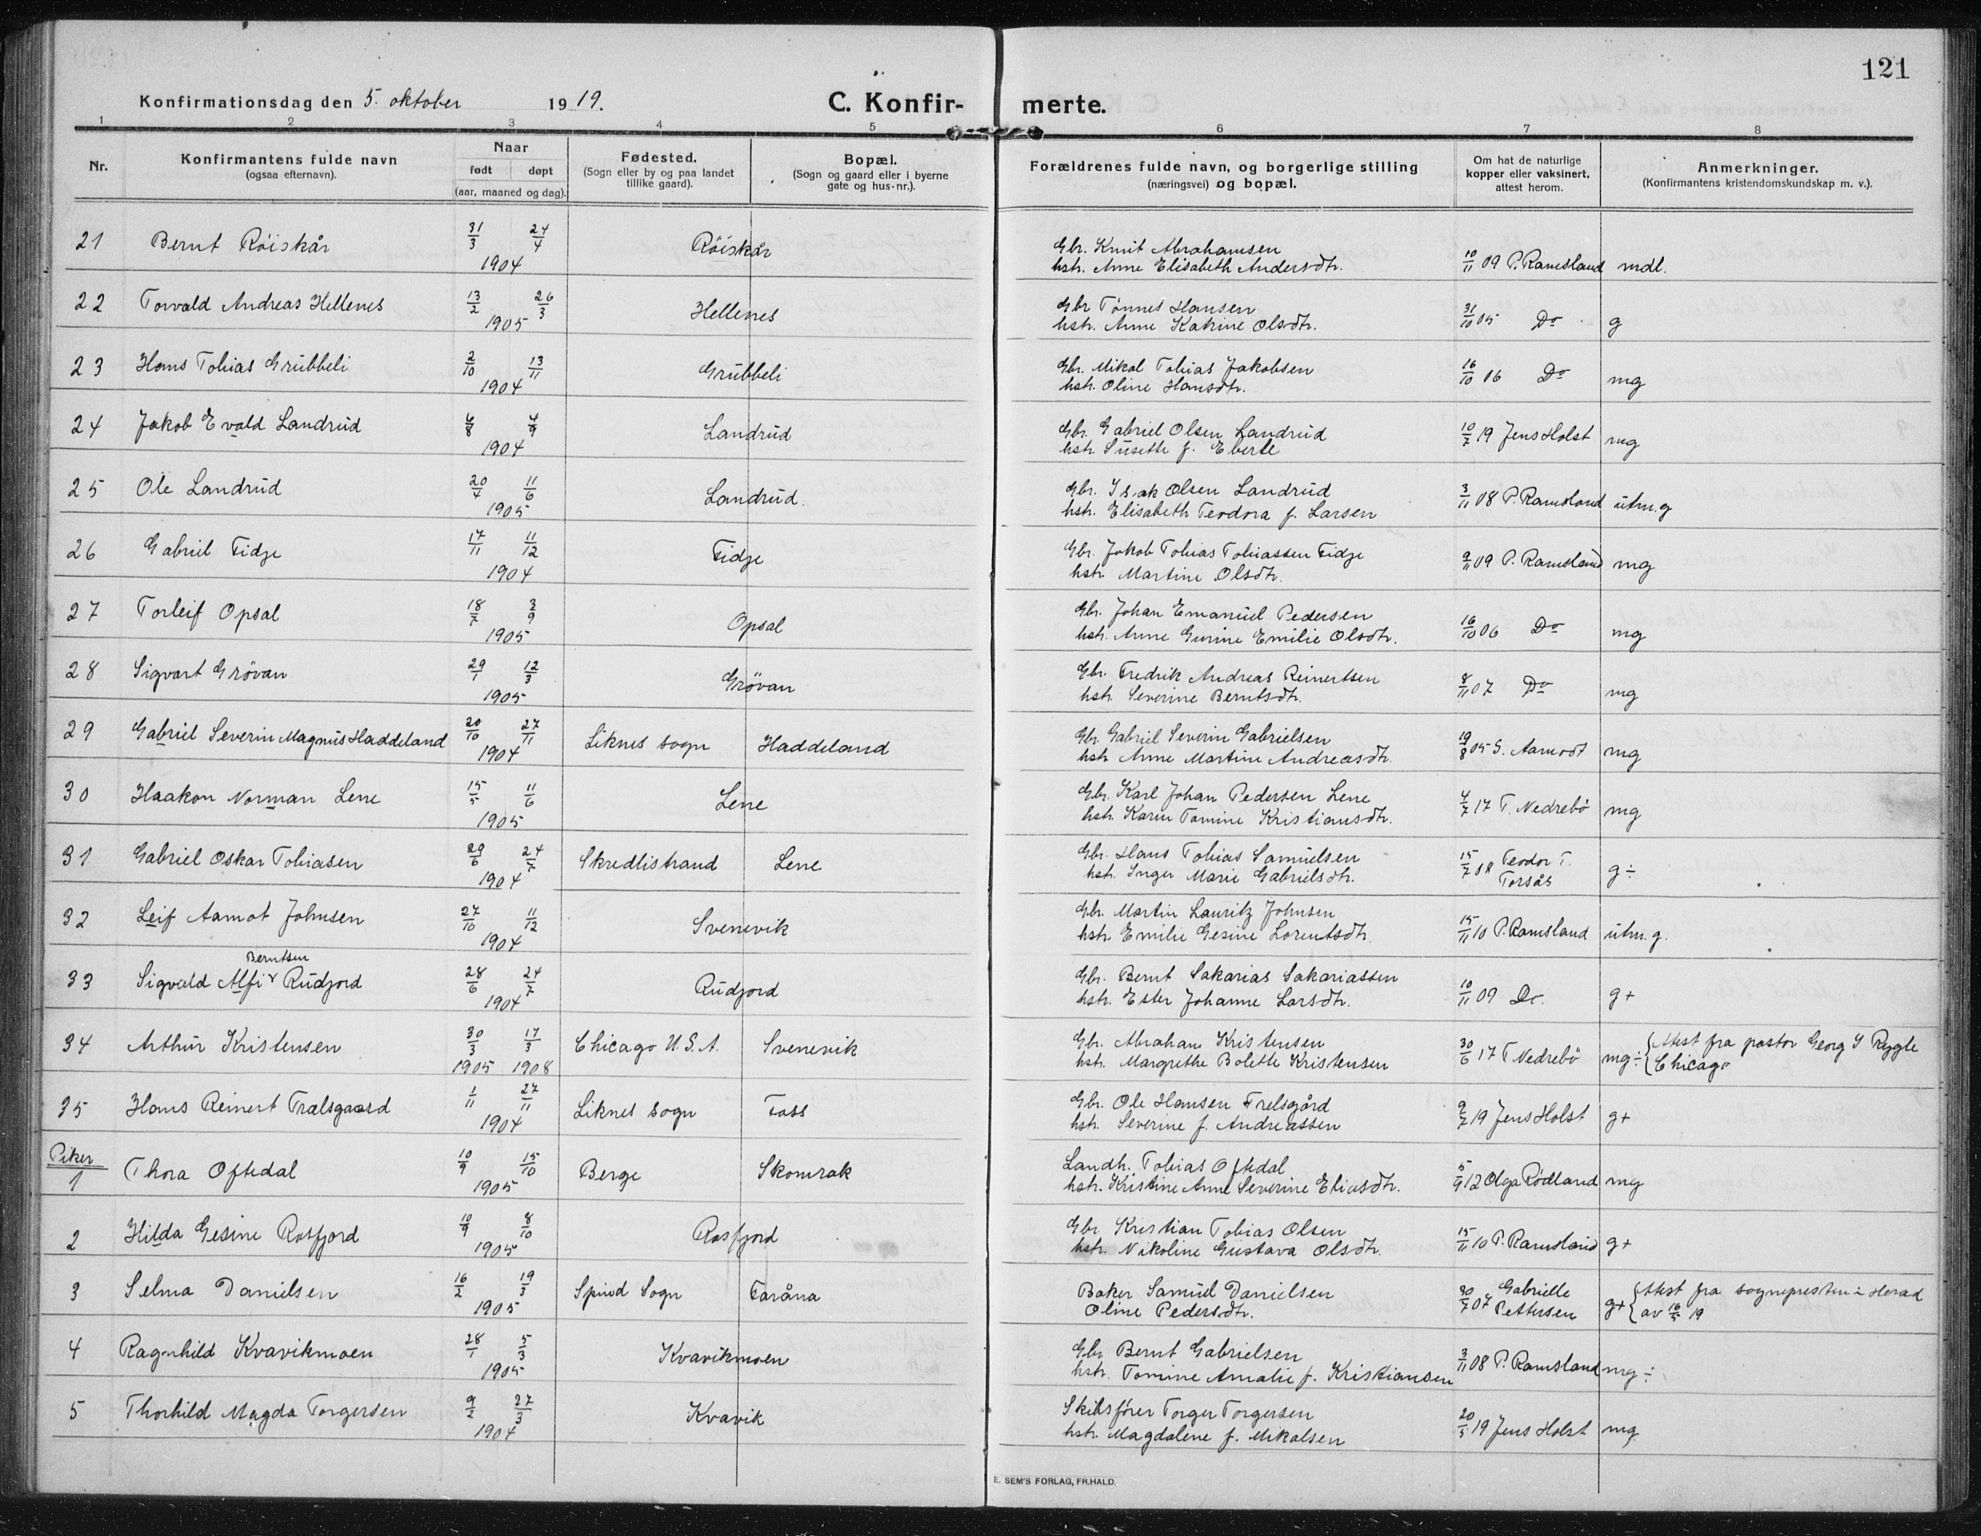 121
Konfirmationsdag den 5. oktober 1919. C. Konfir- merte.
1 2 3 4 5 6 7 8
Nr. Konfirmantens fulde navn (ogsaa efternavn). Naar født døpt (aar, maaned og dag). Fødested. (Sogn eller by og paa landet tillike gaard). Bopæl. (Sogn og gaard eller i byerne gate og hus-nr.). Forældrenes fulde navn, og borgerlige stilling (næringsvei) og bopæl. Om hat de naturlige kopper eller vaksinert, attest herom. Anmerkninger. (Konfirmantens kristendomskundskap m. v.).
21 Bernt Röiskår 31/3 24/4 1904 Röiskår Gbr. Knut Abrahamsen
hstr. Anne Elisabeth Andersdtr. 10/11 09 P. Ramsland mdl.
22 Torvald Andreas Hellenes 13/2 26/3 1905 Hellenes Gbr Tönnes Hansen
hstr. Anne Katrine Olsdtr. 31/10 05 Do g
23 Hans Tobias Grubbeli 2/10 13/11 1904 Grubbeli Gbr. Mikal Tobias Jakobsen
hstr. Oline Hansdtr. 16/10 06 Do mg
24 Jakob Evald Landrud 4/8 4/9 1904 Landrud Gbr. Gabriel Olsen Landrud
hstr. Susette f. Eberte 10/7 19 Jens Holst mg
25 Ole Landrud 20/4 11/6 1905 Landrud. Gbr. Isak Olsen Landrud
hstr. Elisabeth Teodora f. Larsen 3/11 08 P. Ramsland utm. g
26 Gabriel Fidje 17/11 11/12 1904 Fidje Gbr. Jakob Tobias Tobiassen Fidje
hstr Martine Olsdtr. 9/11 09 P. Ramsland mg
27 Torleif Opsal 18/7 3/9 1905 Opsal Gbr. Johan Emanuel Pedersen
hstr. Anne Gurine Emilie Olsdtr. 16/10 06 Do mg
28 Sigvart Grövan 29/1 12/3 1905 Grövan Gbr. Fredrik Andreas Reinertsen
hstr Severine Berntsdtr. 8/11 07 Do mg
29 Gabriel Severin Magnus Haddeland 20/10 27/11 1904 Liknes sogn Haddeland Gbr Gabriel Severin Gabrielsen
hstr Anne Martine Andreasdtr. 19/8 05 S. Aamodt mg
30 Haakon Norman Lene 15/5 11/6 1905 Lene Gbr. Karl Johan Pedersen Lene
hstr. Karin Tomine Kristiansdtr. 4/7 17 T. Nedrebö mg
31 Gabriel Oskar Tobiasen 29/6 24/7 1904 Skredlistrand Lene Gbr. Hans Tobias Samuelsen
hstr. Inger Marie Gabrielsdtr. 15/7 18 Teodor T. Torsås g÷
32 Leif Aamot Johnsen 27/10 11/12 1904 Svenevik Gbr. Martin Lauritz Johnsen
hstr Emilie Gesine Lorentsdtr. 15/11 10 P. Ramsland utm. g.
Berntsen
33 Sigvald Alfi Rudjord 28/6 24/7 1904 Rudjord Gbr. Bernt Sakarias Sakariassen
hstr. Ester Johanne Larsdtr. 10/11 09 Do. g+
34 Arthur Kristensen 30/3 17/3 1905 1908 Chicago U.S.A. Svenevik Gbr. Abraham Kristensen
hstr. Margrethe Bolette Kristensen 30/6 17 T Nedrebö mg÷ {Attest fra pastor Georg S Rygle Chicago
35 Hans Reinert Trælsgaard 1/11 27/11 1904 Liknes sogn Foss Gbr. Ole Hansen Trelsgård
hstr. Severine f. Andreassen 9/7 19 Jens Holst g+
Piker
1 Thora Oftedal 10/9 15/10 1905 Berge Skomrak Landh. Tobias Oftedal
hstr. Kristine Anne Severine Eliasdtr. 5/9 12 Olga Rødland mg
2 Hilda Gesine Rosfjord 10/9 8/10 1905 Rosfjord Gbr Kristian Tobias Olsen
hstr. Nikoline Gustava Olsdtr. 15/11 10 P. Ramsland g+
3 Selma Danielsen 16/2 19/3 1905 Spind Sogn Faråna Baker Samuel Danielsen
Oline Pedersdtr. 30/7 07 Gabrielle Pettersen g+ {Attest fra sognepresten i Herad av 16/5 19
4 Ragnhild Kvavikmoen 28/1 5/3 1905 Kvavikmoen Gbr Bernt Gabrielsen
hstr. Tomine Amalie f. Kristiansen 3/11 08 P. Ramsland mg÷
5 Thorhild Magda Torgersen 9/2 27/3 1904 Kvavik Skibsfører Torger Torgersen
hstr. Magdalene f. Mikalsen 20/5 19 Jens Holst mg.
E. SEM'S FORLAG, FR.HALD.